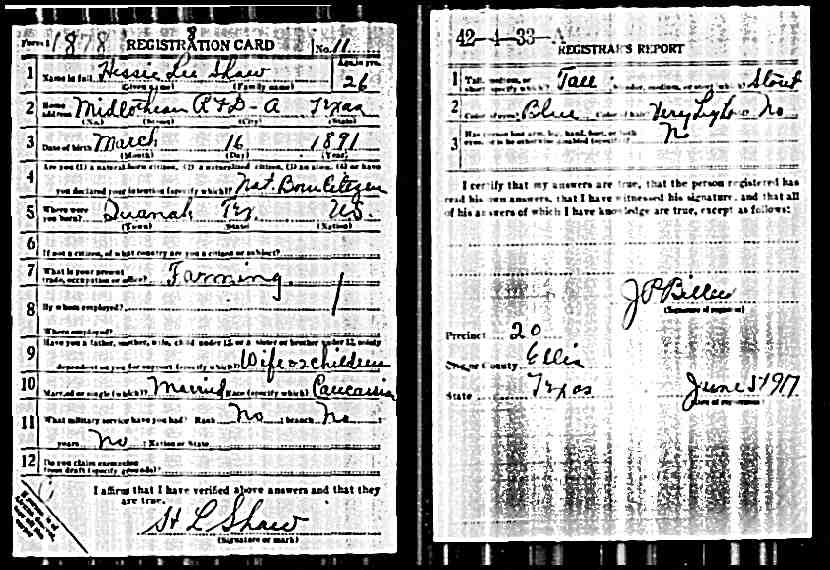 Form 1 1878 REGISTRATION CARD No. 11
8
1 Name in full Hessie Lee Shaw Age, in yrs. 26
(Given name) (Family name)
2 Home address Midlothian RFD - A Texas
(No.) (Street) (City) (State)
3 Date of birth March 16 1891
(Month) (Day) (Year)
4 Are you (1) a natural-born citizen, (2) a naturalized citizen, (3) an alien, (4) or have
you declared your intention (specify which)? Nat. Born Citizen
5 Where were you born? Quanah Tex. US.
(Town) (State) (Nation)
6 If not a citizen, of what country are you a citizen or subject?
7 What is your present trade, occupation or office? Farming.
8 By whom employed?
Where employed?
9 Have you a father, mother, wife, child under 12, or a sister or brother under 12, solely
dependent on you for support (specify which)? Wife children
10 Married or single (which)? Married Race (specify which)? Caucasian
11 What military service have you had? Rank No ; branch No ;
years No ; Nation or State
12 Do you claim exemption from draft (specify grounds)?
I affirm that I have verified above answers and that they
are true.
H L Shaw
(Signature or mark)
42-4-33-A
REGISTRAR'S REPORT
1 Tall, medium, or short (specify which)? Tall Slender, medium, or stout (which)? Stout
2 Color of eyes? Blue Color of hair? Very Light No
3 Has person lost arm, leg, hand, foot, or both
eyes, or is he otherwise disabled (specify)? No
I certify that my answers are true, that the person registered has
read his own answers, that I have witnessed his signature, and that all
of his answers of which I have knowledge are true, except as follows:
J P
(Signature of registrar)
Precinct 20
City or County Ellis
State Texas June 5 1917
(Date of registration)